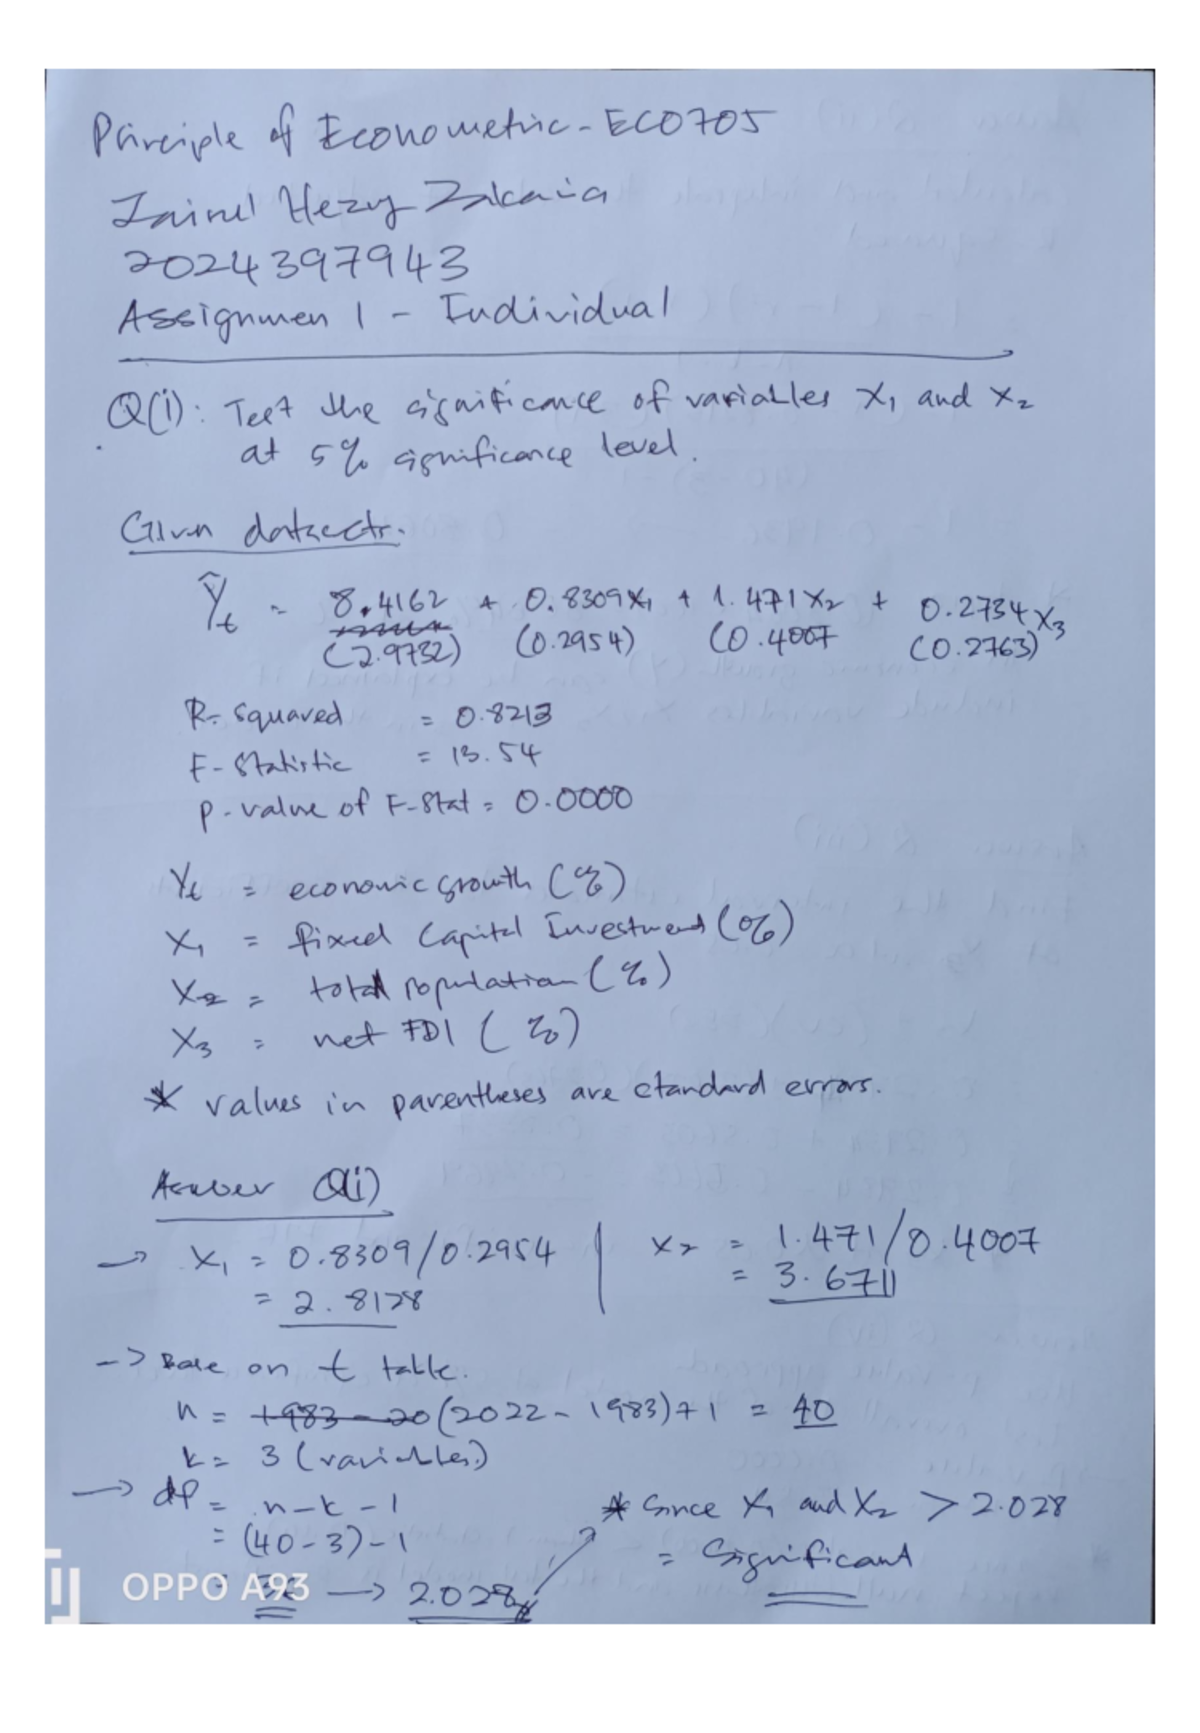 Principle of Econometric - ECO705
Zainul Hezry Zakaria
2024397943
Assignmen 1 - Individual
Q(i): Test the significance of variables X₁ and X₂
at 5% significance level.
Given datasets.
Ŷt = 8.4162 + 0.8309X₁ + 1.471X₂ + 0.2734X₃
(2.9732) (0.2954) (0.4007 (0.2763)
R-squared = 0.8213
F-Statistic = 13.54
P-value of F-stat = 0.0000
Yt = economic growth (%)
X₁ = fixed Capital Investment (%)
X₂ = total population (%)
X₃ = net FDI (%)
* values in parentheses are standard errors.
Answer Q(i)
→ X₁ = 0.8309/0.2954 | X₂ = 1.471/0.4007
= 2.8128 = 3.6711
-> Base on t table.
n = 1983 - 20 (2022 - 1983)+1 = 40
k = 3 (variables)
→ df = n-k-1
= (40-3)-1
= 36 → 2.028
* Since X₁ and X₂ > 2.028
= Significant
OPPO A93